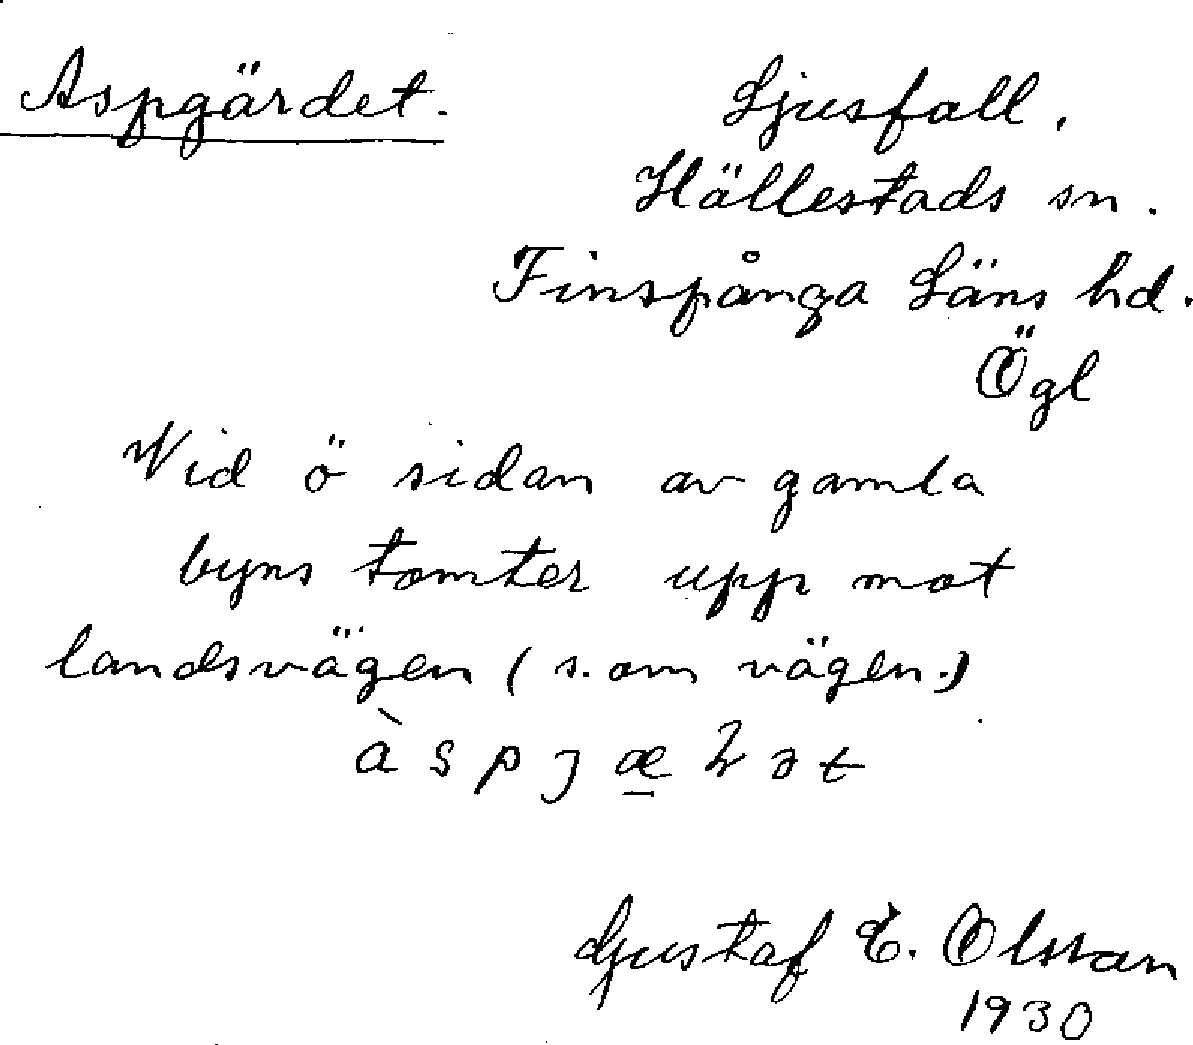 Aspgärdet.
Ljusfall.
Hällestads sn.
Finspånga Läns hd.
Ögl
Vid ö sidan av gamla
byns tomter upp mot
landsvägen (s. om vägen.)
Gustaf E. Olsson
1930